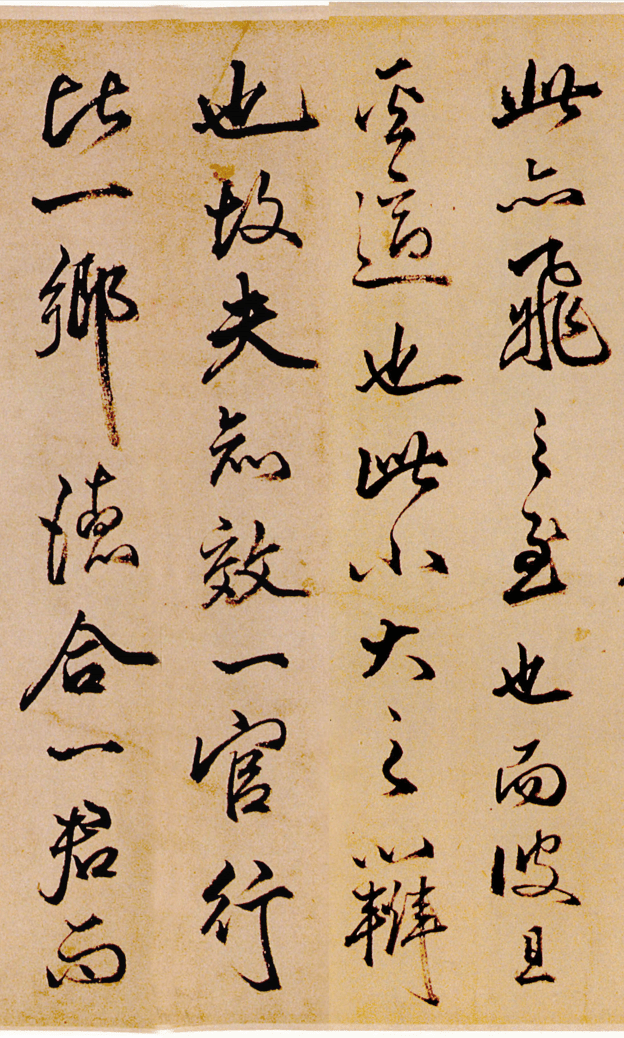 此亦飛之至也而彼且
奚適也此小大之辯
也故夫知效一官行
比一鄉德合一君而